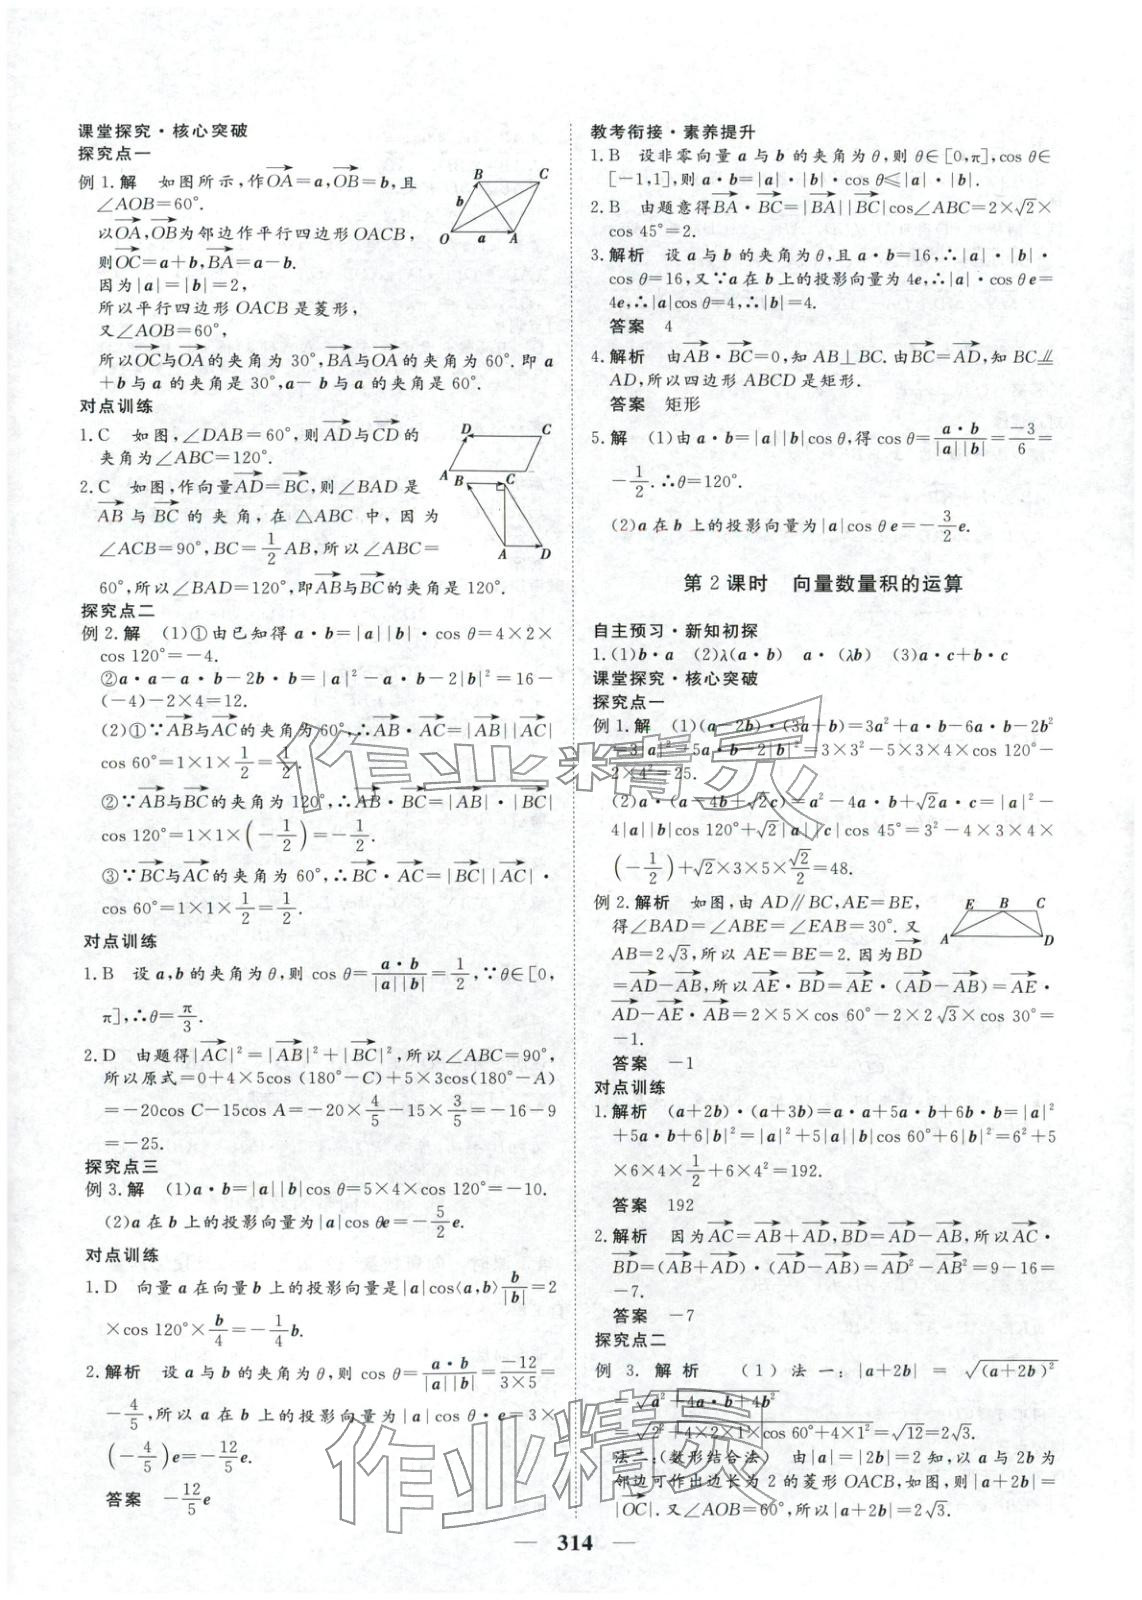 课堂探究·核心突破
探究点一
例1.解 如图所示,作$\overrightarrow{OA}$=a,$\overrightarrow{OB}$=b,且
∠AOB=60°.
以$\overrightarrow{OA}$,$\overrightarrow{OB}$为邻边作平行四边形OACB,
则$\overrightarrow{OC}$=a+b,$\overrightarrow{BA}$=a-b.
因为|a|=|b|=2,
所以平行四边形OACB是菱形,
又∠AOB=60°,
所以$\overrightarrow{OC}$与$\overrightarrow{OA}$的夹角为30°,$\overrightarrow{BA}$与$\overrightarrow{OA}$的夹角为60°.即a
+b与a的夹角是30°,a-b与a的夹角是60°.
B C b O a A
对点训练
1.C 如图,∠DAB=60°,则$\overrightarrow{AD}$与$\overrightarrow{CD}$的
夹角为∠ABC=120°.
D C A
2.C 如图,作向量$\overrightarrow{AD}$=$\overrightarrow{BC}$,则∠BAD是
$\overrightarrow{AB}$与$\overrightarrow{BC}$的夹角,在△ABC中,因为
∠ACB=90°,BC=$\frac{1}{2}$AB,所以∠ABC=
60°,所以∠BAD=120°,即$\overrightarrow{AB}$与$\overrightarrow{BC}$的夹角为120°.
B C A D
探究点二
例2.解 (1)①由已知得a·b=|a||b|·cos θ=4×2×
cos 120°=-4.
②a·a-a·b-2b·b=|a|²-a·b-2|b|²=16-
(-4)-2×4=12.
(2)①∵$\overrightarrow{AB}$与$\overrightarrow{AC}$的夹角为60°,∴$\overrightarrow{AB}$·$\overrightarrow{AC}$=|$\overrightarrow{AB}$||$\overrightarrow{AC}$|
cos 60°=1×1×$\frac{1}{2}$=$\frac{1}{2}$.
②∵$\overrightarrow{AB}$与$\overrightarrow{BC}$的夹角为120°,∴$\overrightarrow{AB}$·$\overrightarrow{BC}$=|$\overrightarrow{AB}$|·|$\overrightarrow{BC}$|
cos 120°=1×1×$\left(-\frac{1}{2}\right)$=-$\frac{1}{2}$.
③∵$\overrightarrow{BC}$与$\overrightarrow{AC}$的夹角为60°,∴$\overrightarrow{BC}$·$\overrightarrow{AC}$=|$\overrightarrow{BC}$||$\overrightarrow{AC}$|·
cos 60°=1×1×$\frac{1}{2}$=$\frac{1}{2}$.
对点训练
1.B 设a,b的夹角为θ,则cos θ=$\frac{a·b}{|a||b|}$=$\frac{1}{2}$,∵θ∈[0,
π],∴θ=$\frac{π}{3}$.
2.D 由题得|$\overrightarrow{AC}$|²=|$\overrightarrow{AB}$|²+|$\overrightarrow{BC}$|²,所以∠ABC=90°,
所以原式=0+4×5cos (180°-C)+5×3cos(180°-A)
=-20cos C-15cos A=-20×$\frac{4}{5}$-15×$\frac{3}{5}$=-16-9
=-25.
探究点三
例3.解 (1)a·b=|a||b|cos θ=5×4×cos 120°=-10.
(2)a在b上的投影向量为|a|cos θe=-$\frac{5}{2}$e.
对点训练
1.D 向量a在向量b上的投影向量是|a|cos⟨a,b⟩$\frac{b}{|b|}$=2
×cos 120°×$\frac{b}{4}$=-$\frac{1}{4}$b.
2.解析 设a与b的夹角为θ,则cos θ=$\frac{a·b}{|a||b|}$=$\frac{-12}{3×5}$=
-$\frac{4}{5}$,所以a在b上的投影向量为|a|cos θ·e=3×
$\left(-\frac{4}{5}\right)$e=-$\frac{12}{5}$e.
答案 -$\frac{12}{5}$e
教考衔接·素养提升
1.B 设非零向量a与b的夹角为θ,则θ∈[0,π],cos θ∈
[-1,1],则a·b=|a|·|b|·cos θ≤|a|·|b|.
2.B 由题意得$\overrightarrow{BA}$·$\overrightarrow{BC}$=|$\overrightarrow{BA}$||$\overrightarrow{BC}$|cos∠ABC=2×$\sqrt{2}$×
cos 45°=2.
3.解析 设a与b的夹角为θ,且a·b=16,∴|a|·|b|·
cos θ=16,又∵a在b上的投影向量为4e,∴|a|·cos θ e=
4e,∴|a|cos θ=4,∴|b|=4.
答案 4
4.解析 由$\overrightarrow{AB}$·$\overrightarrow{BC}$=0,知AB⊥BC.由$\overrightarrow{BC}$=$\overrightarrow{AD}$,知BC⫽
AD,所以四边形ABCD是矩形.
答案 矩形
5.解 (1)由a·b=|a||b|cos θ,得cos θ=$\frac{a·b}{|a||b|}$=$\frac{-3}{6}$=
-$\frac{1}{2}$.∴θ=120°.
(2)a在b上的投影向量为|a|cos θ e=-$\frac{3}{2}$e.
第2课时 向量数量积的运算
自主预习·新知初探
1.(1)b·a (2)λ(a·b) a·(λb) (3)a·c+b·c
课堂探究·核心突破
探究点一
例1.解 (1)(a-2b)·(3a+b)=3a²+a·b-6a·b-2b²
=3|a|²-5a·b-2|b|²=3×3²-5×3×4×cos 120°-
2×4²=25.
(2)a·(a-4b+$\sqrt{2}$c)=a²-4a·b+$\sqrt{2}$a·c=|a|²-
4|a||b|cos 120°+$\sqrt{2}$|a||c|cos 45°=3²-4×3×4×
$\left(-\frac{1}{2}\right)$+$\sqrt{2}$×3×5×$\frac{\sqrt{2}}{2}$=48.
例2.解析 如图,由AD∥BC,AE=BE,
得∠BAD=∠ABE=∠EAB=30°.又
AB=2$\sqrt{3}$,所以AE=BE=2.因为$\overrightarrow{BD}$
=$\overrightarrow{AD}$-$\overrightarrow{AB}$,所以$\overrightarrow{AE}$·$\overrightarrow{BD}$=$\overrightarrow{AE}$·($\overrightarrow{AD}$-$\overrightarrow{AB}$)=$\overrightarrow{AE}$·
$\overrightarrow{AD}$-$\overrightarrow{AE}$·$\overrightarrow{AB}$=2×5×cos 60°-2×2$\sqrt{3}$×cos 30°=
-1.
E B C A D
答案 -1
对点训练
1.解析 (a+2b)·(a+3b)=a·a+5a·b+6b·b=|a|²
+5a·b+6|b|²=|a|²+5|a||b|cos 60°+6|b|²=6²+5
×6×4×$\frac{1}{2}$+6×4²=192.
答案 192
2.解析 因为$\overrightarrow{AC}$=$\overrightarrow{AB}$+$\overrightarrow{AD}$,$\overrightarrow{BD}$=$\overrightarrow{AD}$-$\overrightarrow{AB}$,所以$\overrightarrow{AC}$·
$\overrightarrow{BD}$=($\overrightarrow{AB}$+$\overrightarrow{AD}$)·($\overrightarrow{AD}$-$\overrightarrow{AB}$)=$\overrightarrow{AD}$²-$\overrightarrow{AB}$²=9-16=
-7.
答案 -7
探究点二
例3.解析 (1)法一:|a+2b|=$\sqrt{(a+2b)^2}$
=$\sqrt{a^2+4a·b+4b^2}$
=$\sqrt{2^2+4×2×1×cos 60°+4×1^2}$=$\sqrt{12}$=2$\sqrt{3}$.
法二:(数形结合法) 由|a|=|2b|=2知,以a与2b为
邻边可作出边长为2的菱形OACB,如图,则|a+2b|=
|$\overrightarrow{OC}$|.又∠AOB=60°,所以|a+2b|=2$\sqrt{3}$.
314
作业精灵
作业精灵